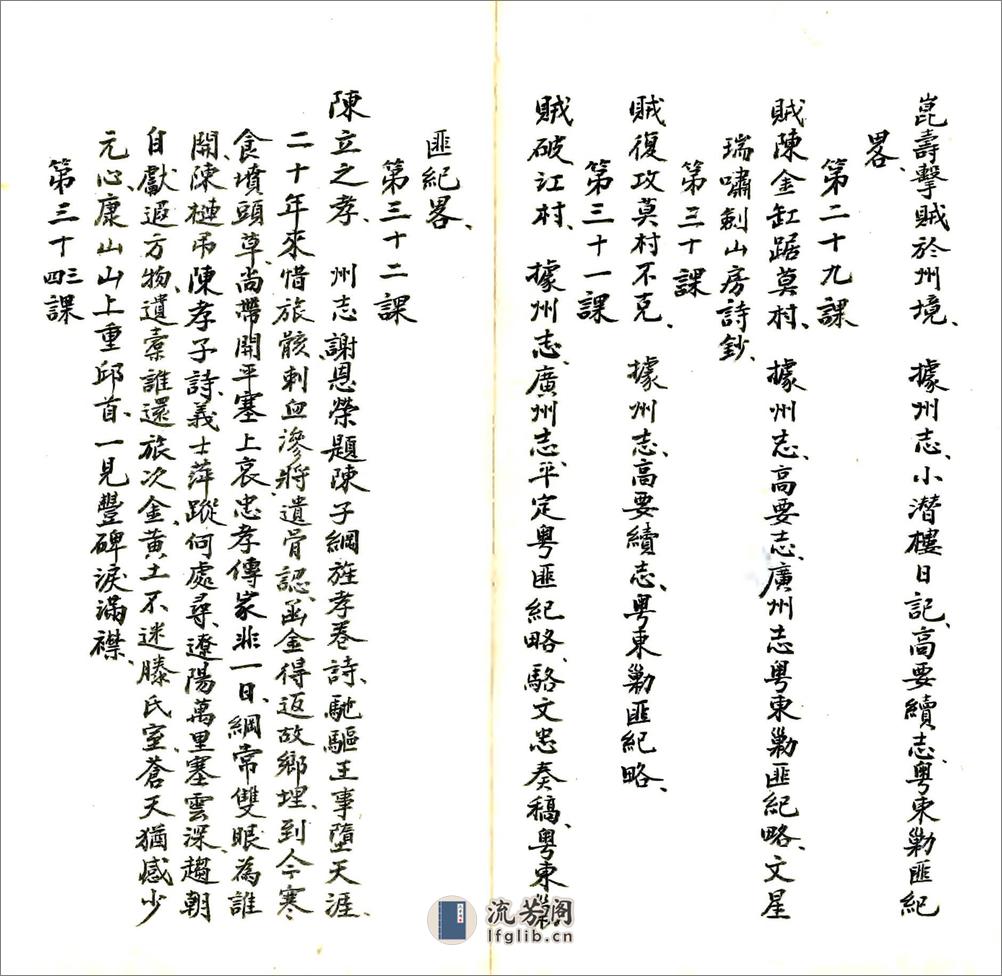 崑壽擊賊於州境、　據州志、小潛樓日記、高要續志、粵東勦匪紀
畧、
第二十九課
賊陳金缸踞莫村、　據州志、高要志、廣州志、粵東勦匪紀略、文星
瑞嘯劍山房詩鈔、
第三十課
賊復攻莫村不克、　據州志、高要續志、粵東勦匪紀略、
第三十一課
賊破江村、　據州志、廣州志、平定粵匪紀略、駱文忠奏稿、粵東勦
匪紀畧、
第三十二課
陳立之孝、　州志、謝恩榮題陳子綱旌孝卷詩、馳驅王事墮天涯、
二十年來惜旅骸、刺血滲將遺骨認、函金得返故鄉埋、到今寒
食墳頭草、尚帶開平塞上哀、忠孝傳家非一日、綱常雙眼為誰
開、陳槤吊陳孝子詩、義士萍蹤何處尋、遼陽萬里塞雲深、趨朝
自獻遐方物、遺槖誰還旅次金、黃土不迷滕氏室、蒼天猶感少
元心、康山山上重邱首、一見豐碑淚滿襟、
第三十三四課
流芳阁
lfglib.cn